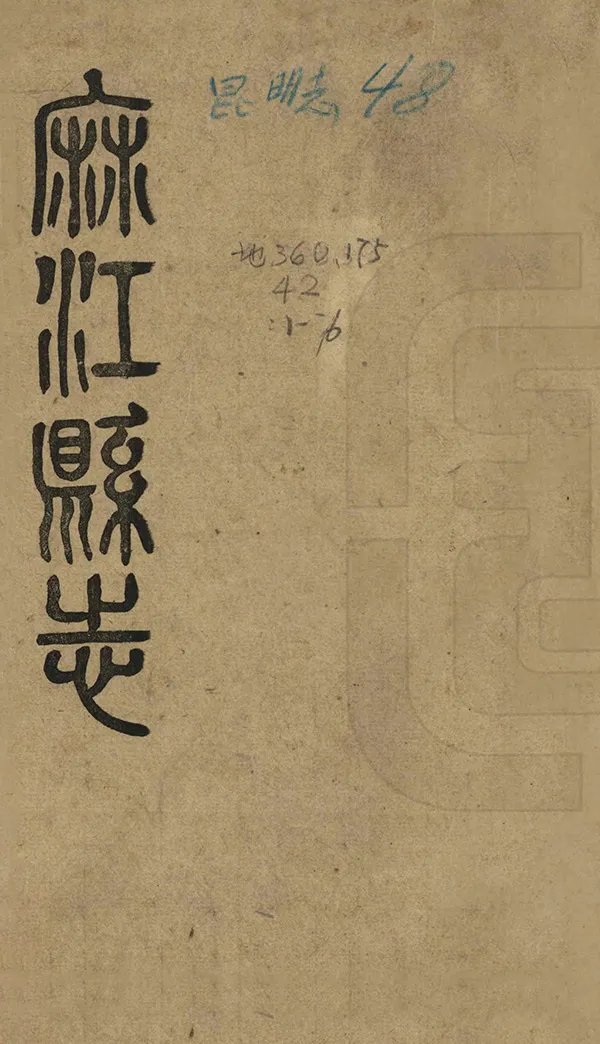 麻江縣志
昆明志 48
地360.175
42
:1-6